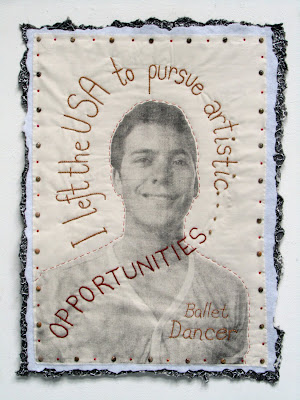 I left the USA to pursue artistic...
OPPORTUNITIES
Ballet
Dancer